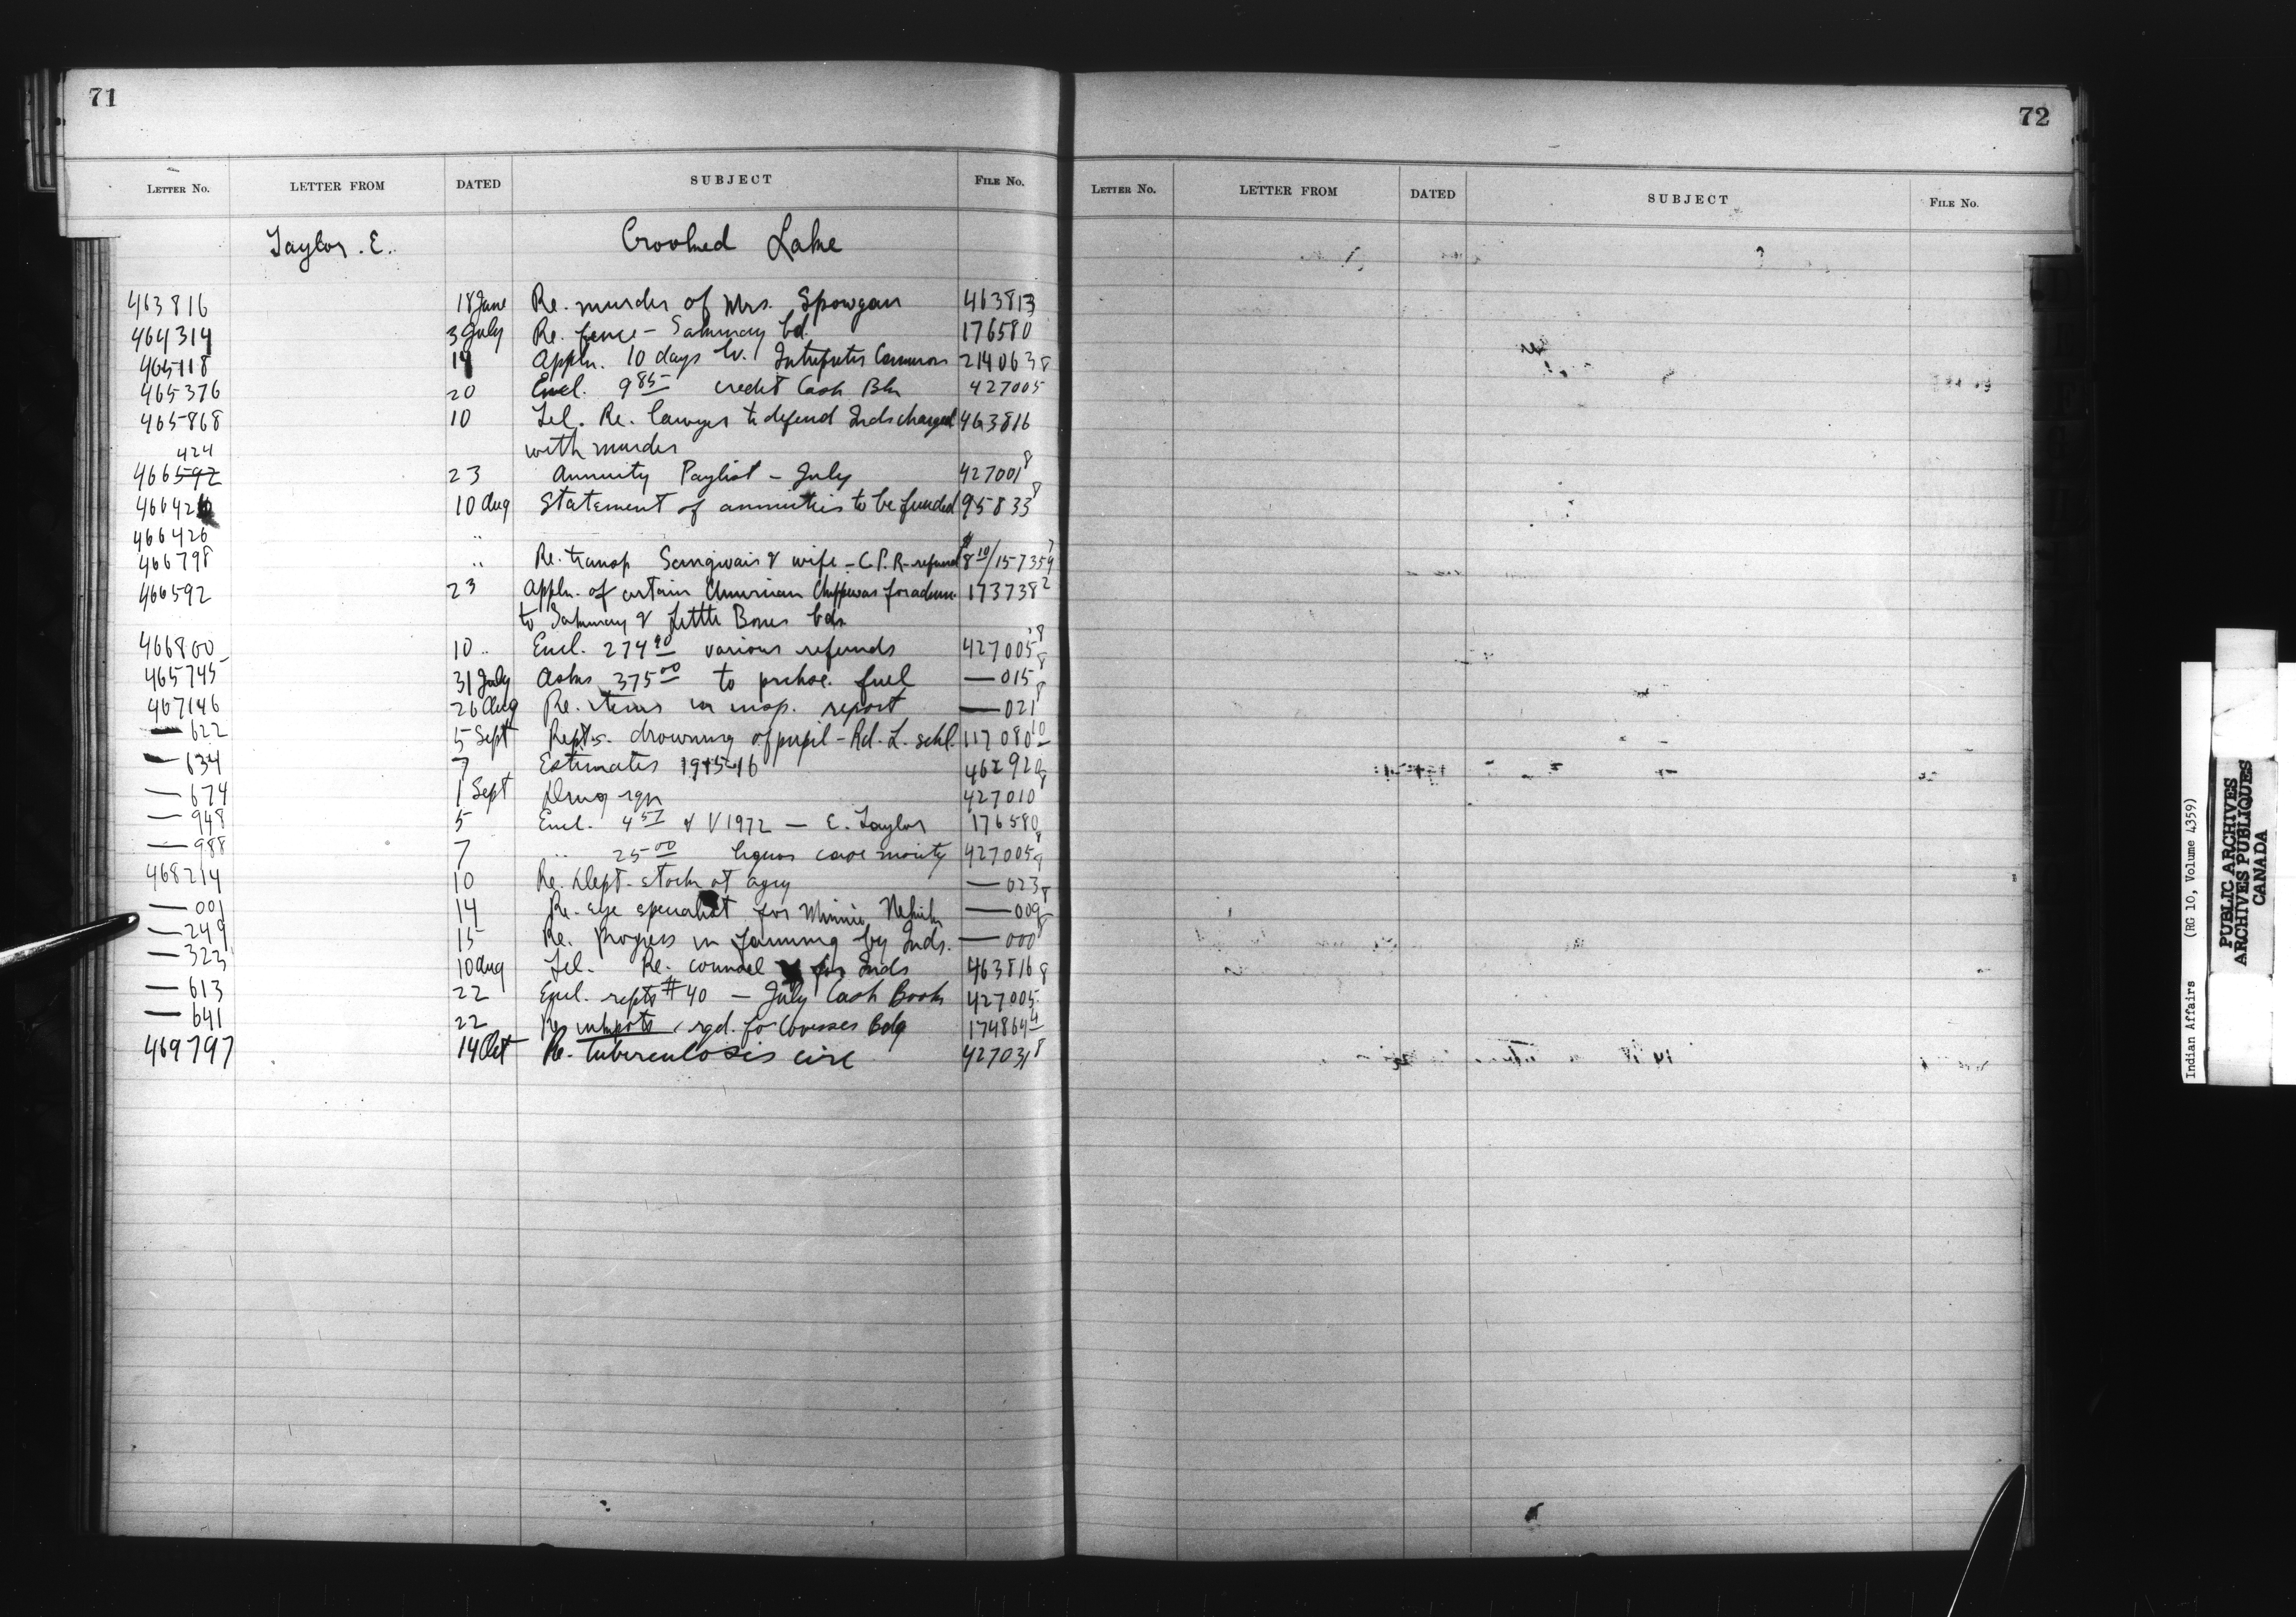 71
72
LETTER No. LETTER FROM DATED SUBJECT FILE No.
LETTER No. LETTER FROM DATED SUBJECT FILE No.
Taylor. E. Crooked Lake
463816 18 June Re. murder of Mrs. 463813
464314 3 July Re. fence - Sakimay bd. 176580
465118 Appln. 10 days lv. Interpreter Cameron 214063 8
465376 20 Encl. 9 85 credit Cash Bk 427005
465868 10 Tel. Re. lawyer to defend Inds charged 463816
with murder
424
466592 23 Annuity Paylist - July 427001 8
46642 10 Aug Statement of annuities to be funded 95833 8
466426 "
466798 " Re. transp & wife - C.P.R. refund $8 10/157359
466592 23 Appln. of certain American Chippewas for admn. 173738 2
to Sakimay & Little Bones bds
466800 10 " Encl. 274 90 various refunds 427005 8
465745 31 July Asks 375 00 to prchse. fuel — 015 8
467146 26 Aug Re. items in insp. report — 021 8
— 622 5 Sept Repts. drowning of pupil - Rd. L. schl. 117080 10
— 634 7 Estimates 1915-16 462920
— 674 1 Sept Drug rqn 427010 8
— 948 5 Encl. 4 57 & V1972 — E. Taylor 176580
— 988 7 " 25 00 liquor case moiety 427005 8
468214 10 Re. Dept. stock at agcy — 023 8
— 001 14 Re. eye specialist for Minnie — 009
— 249 15 Re. progress in farming by Inds. — 000 8
— 323 10 Aug Tel. Re. counsel for Inds 463816 8
— 613 22 Encl. repts #40 — July Cash Book 427005
— 641 22 Re rqd. for Bdg 174864 4
469797 14 Oct Re. tuberculosis circ 427031 8
Indian Affairs (RG 10, Volume 4359)
PUBLIC ARCHIVES
ARCHIVES PUBLIQUES
CANADA